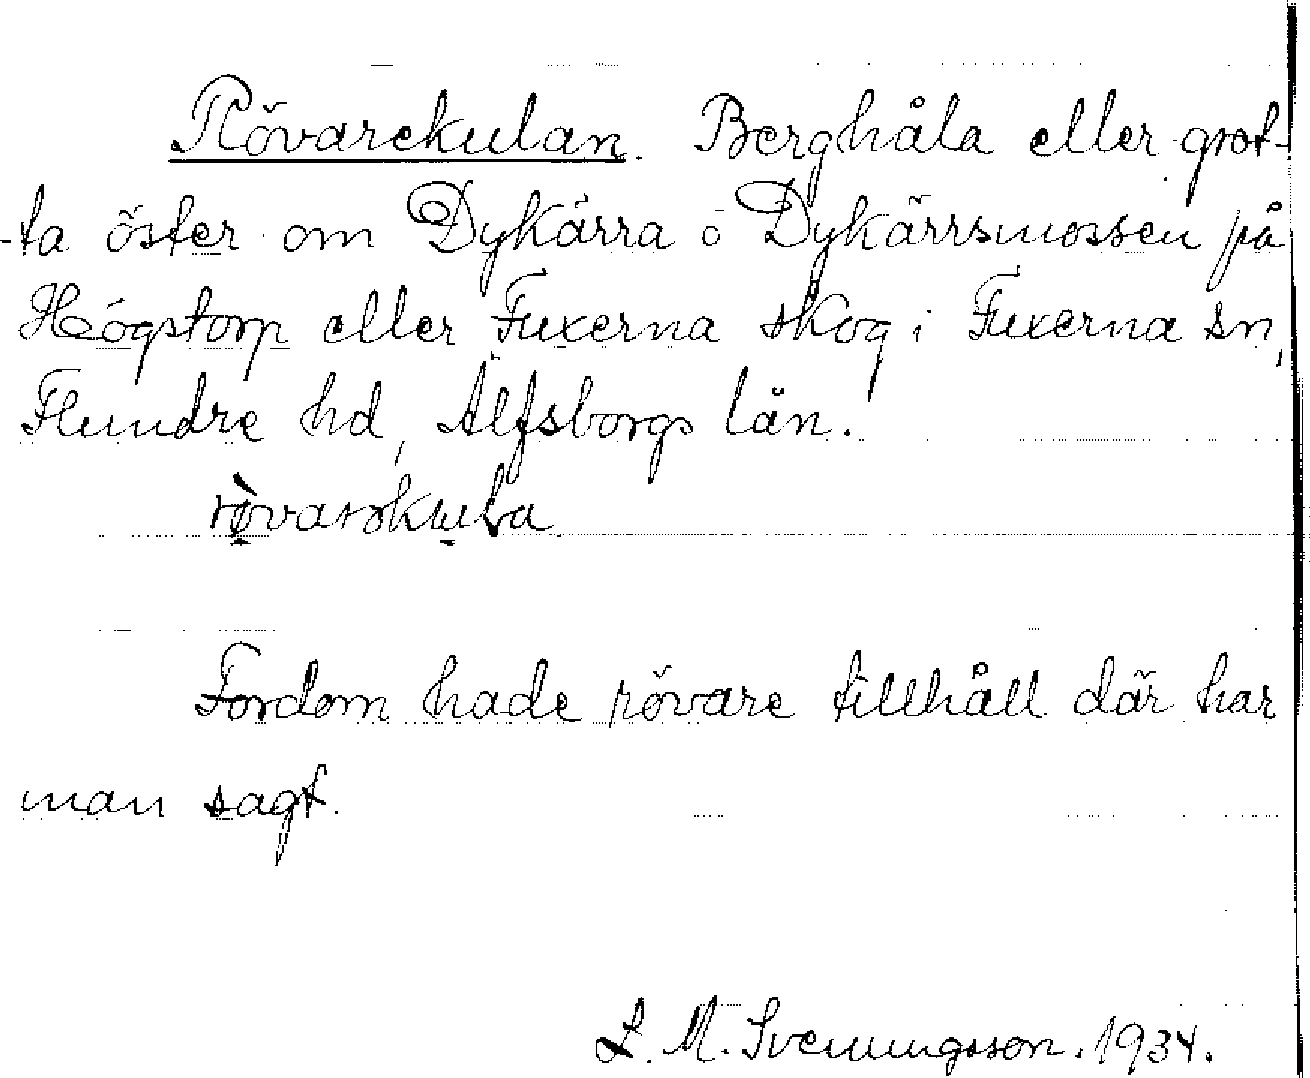 Rövarekulan. Berghåla eller grot-
-ta öster om Dykärra o Dykärrsmossen på
Högstorp eller Fuxerna skog i Fuxerna sn,
Flundre hd, Älfsborgs län.
Fordom hade rövare tillhåll där har
man sagt.
L. M. Svenungsson. 1934.